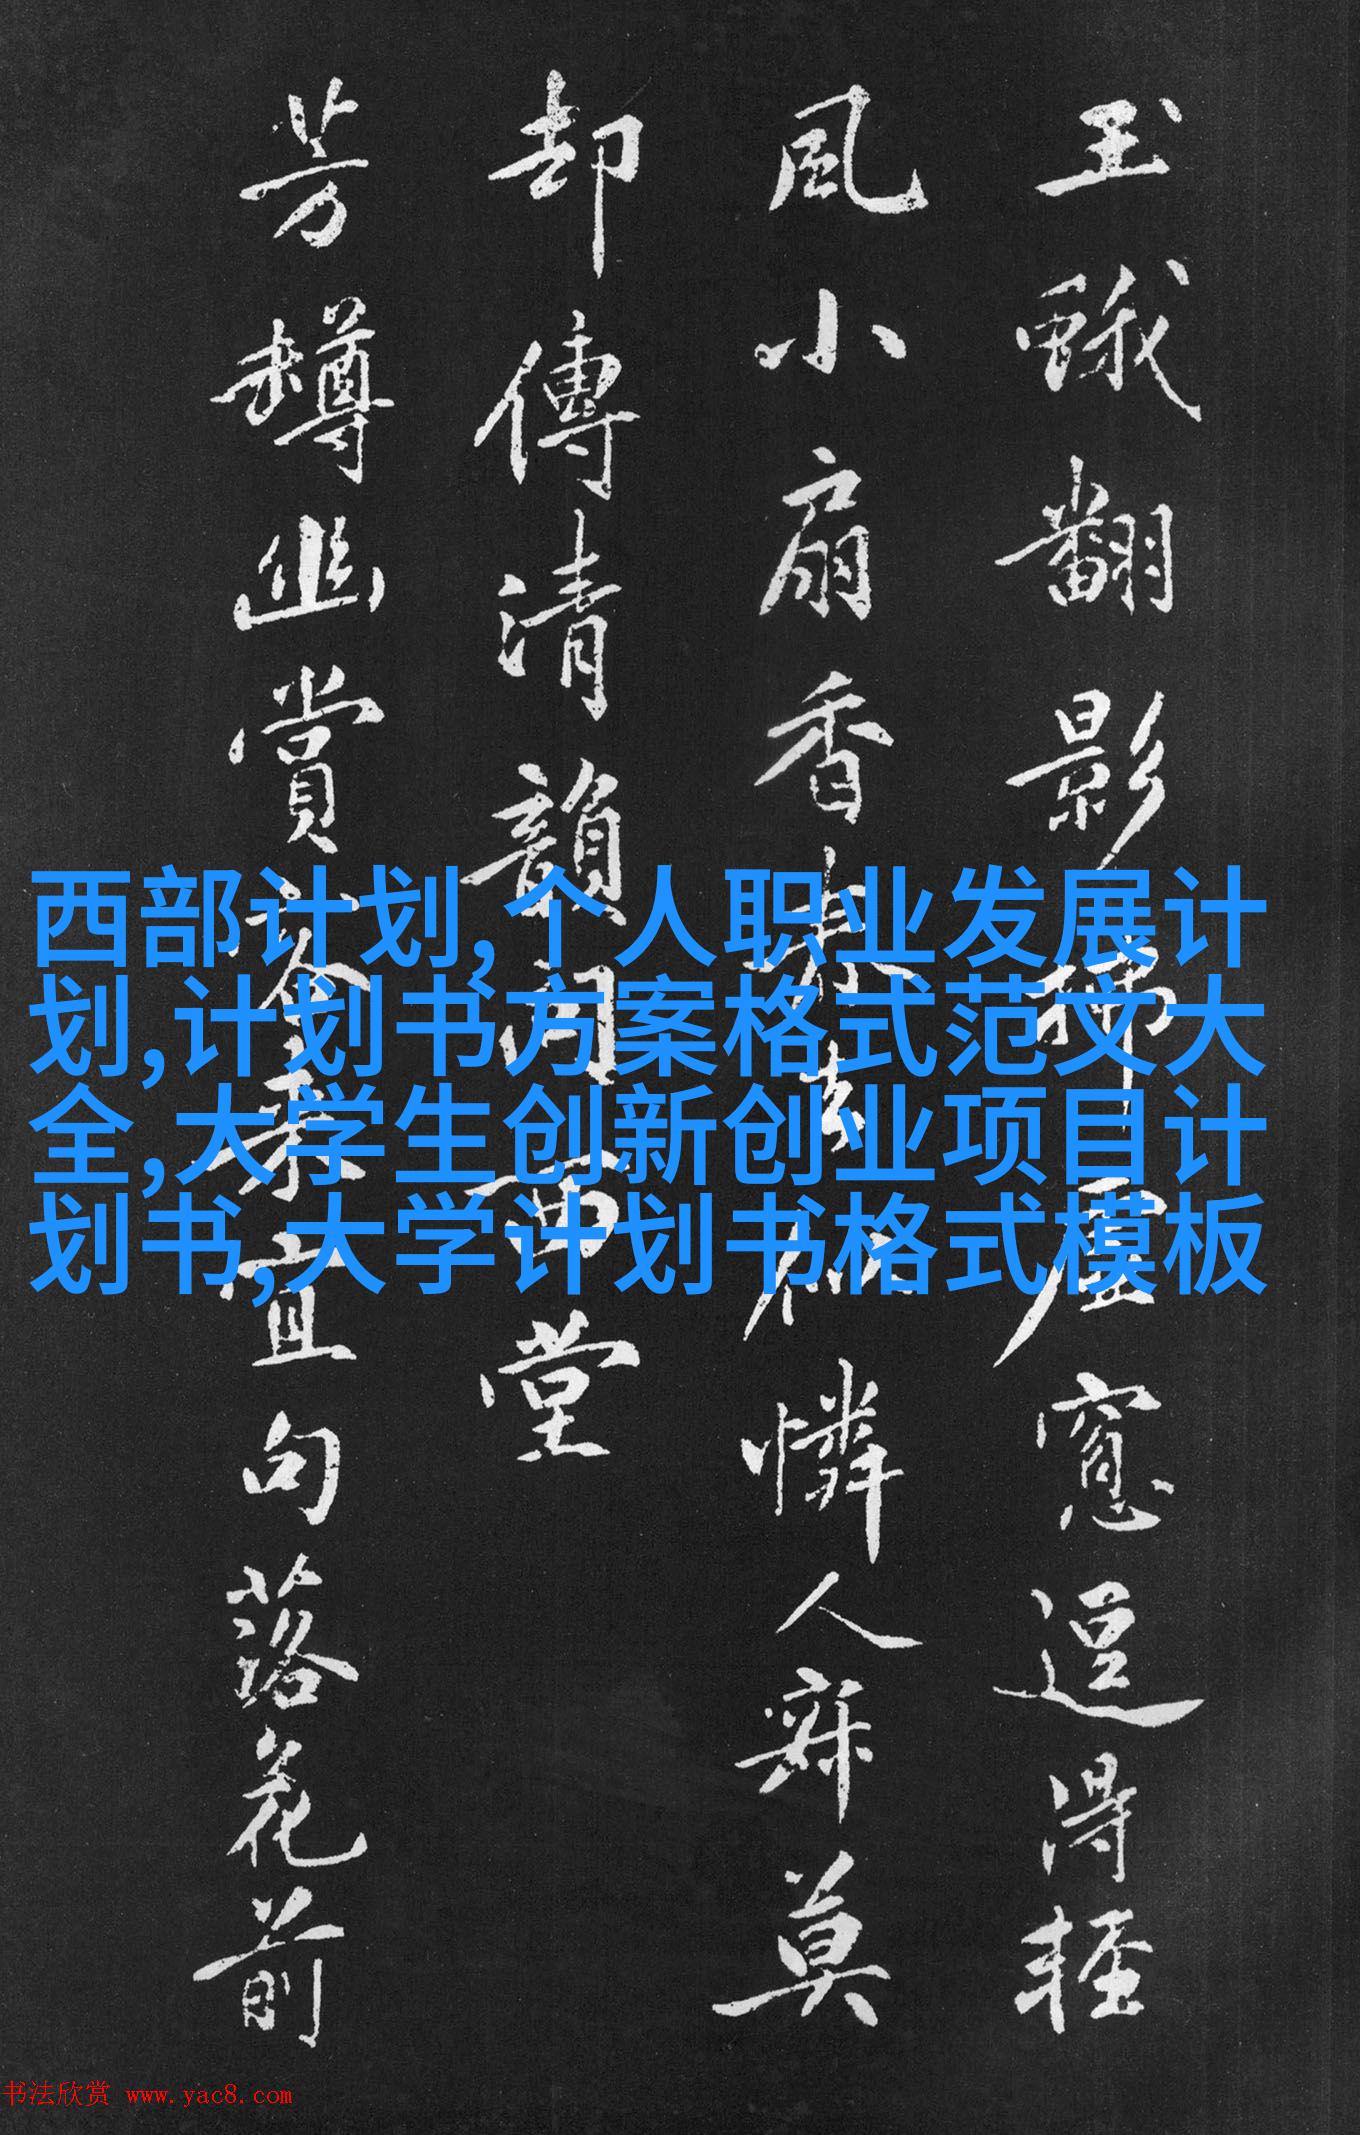 玉蛾翻影虛窓逗得輕
風小扇香春去憐人寂莫
却傳清韻西堂
芳樽幽賞宜句落花前
西部计划,个人职业发展计
划,计划书方案格式范文大
全,大学生创新创业项目计
划书,大学计划书格式模板
书法欣赏 www.yac8.com